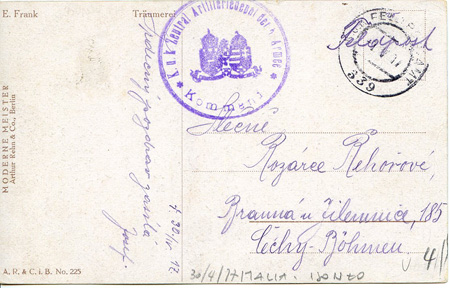 E. Frank
Träumerei
MODERNE MEISTER
Arthur Rehn & Co., Berlin
A. R. & C. i. B. No. 225
K.u.k. Zentral Artilleriedepot der 5. Armee
Kommando
339
Feldpost
Srdečný pozdrav zasílá
Josef.
30/IV 17
Slečně
Rozárce Řehořové,
Branná u Jilemnice, 185
Čechy-Böhmen
30/4/17 ITALIA - ISONZO